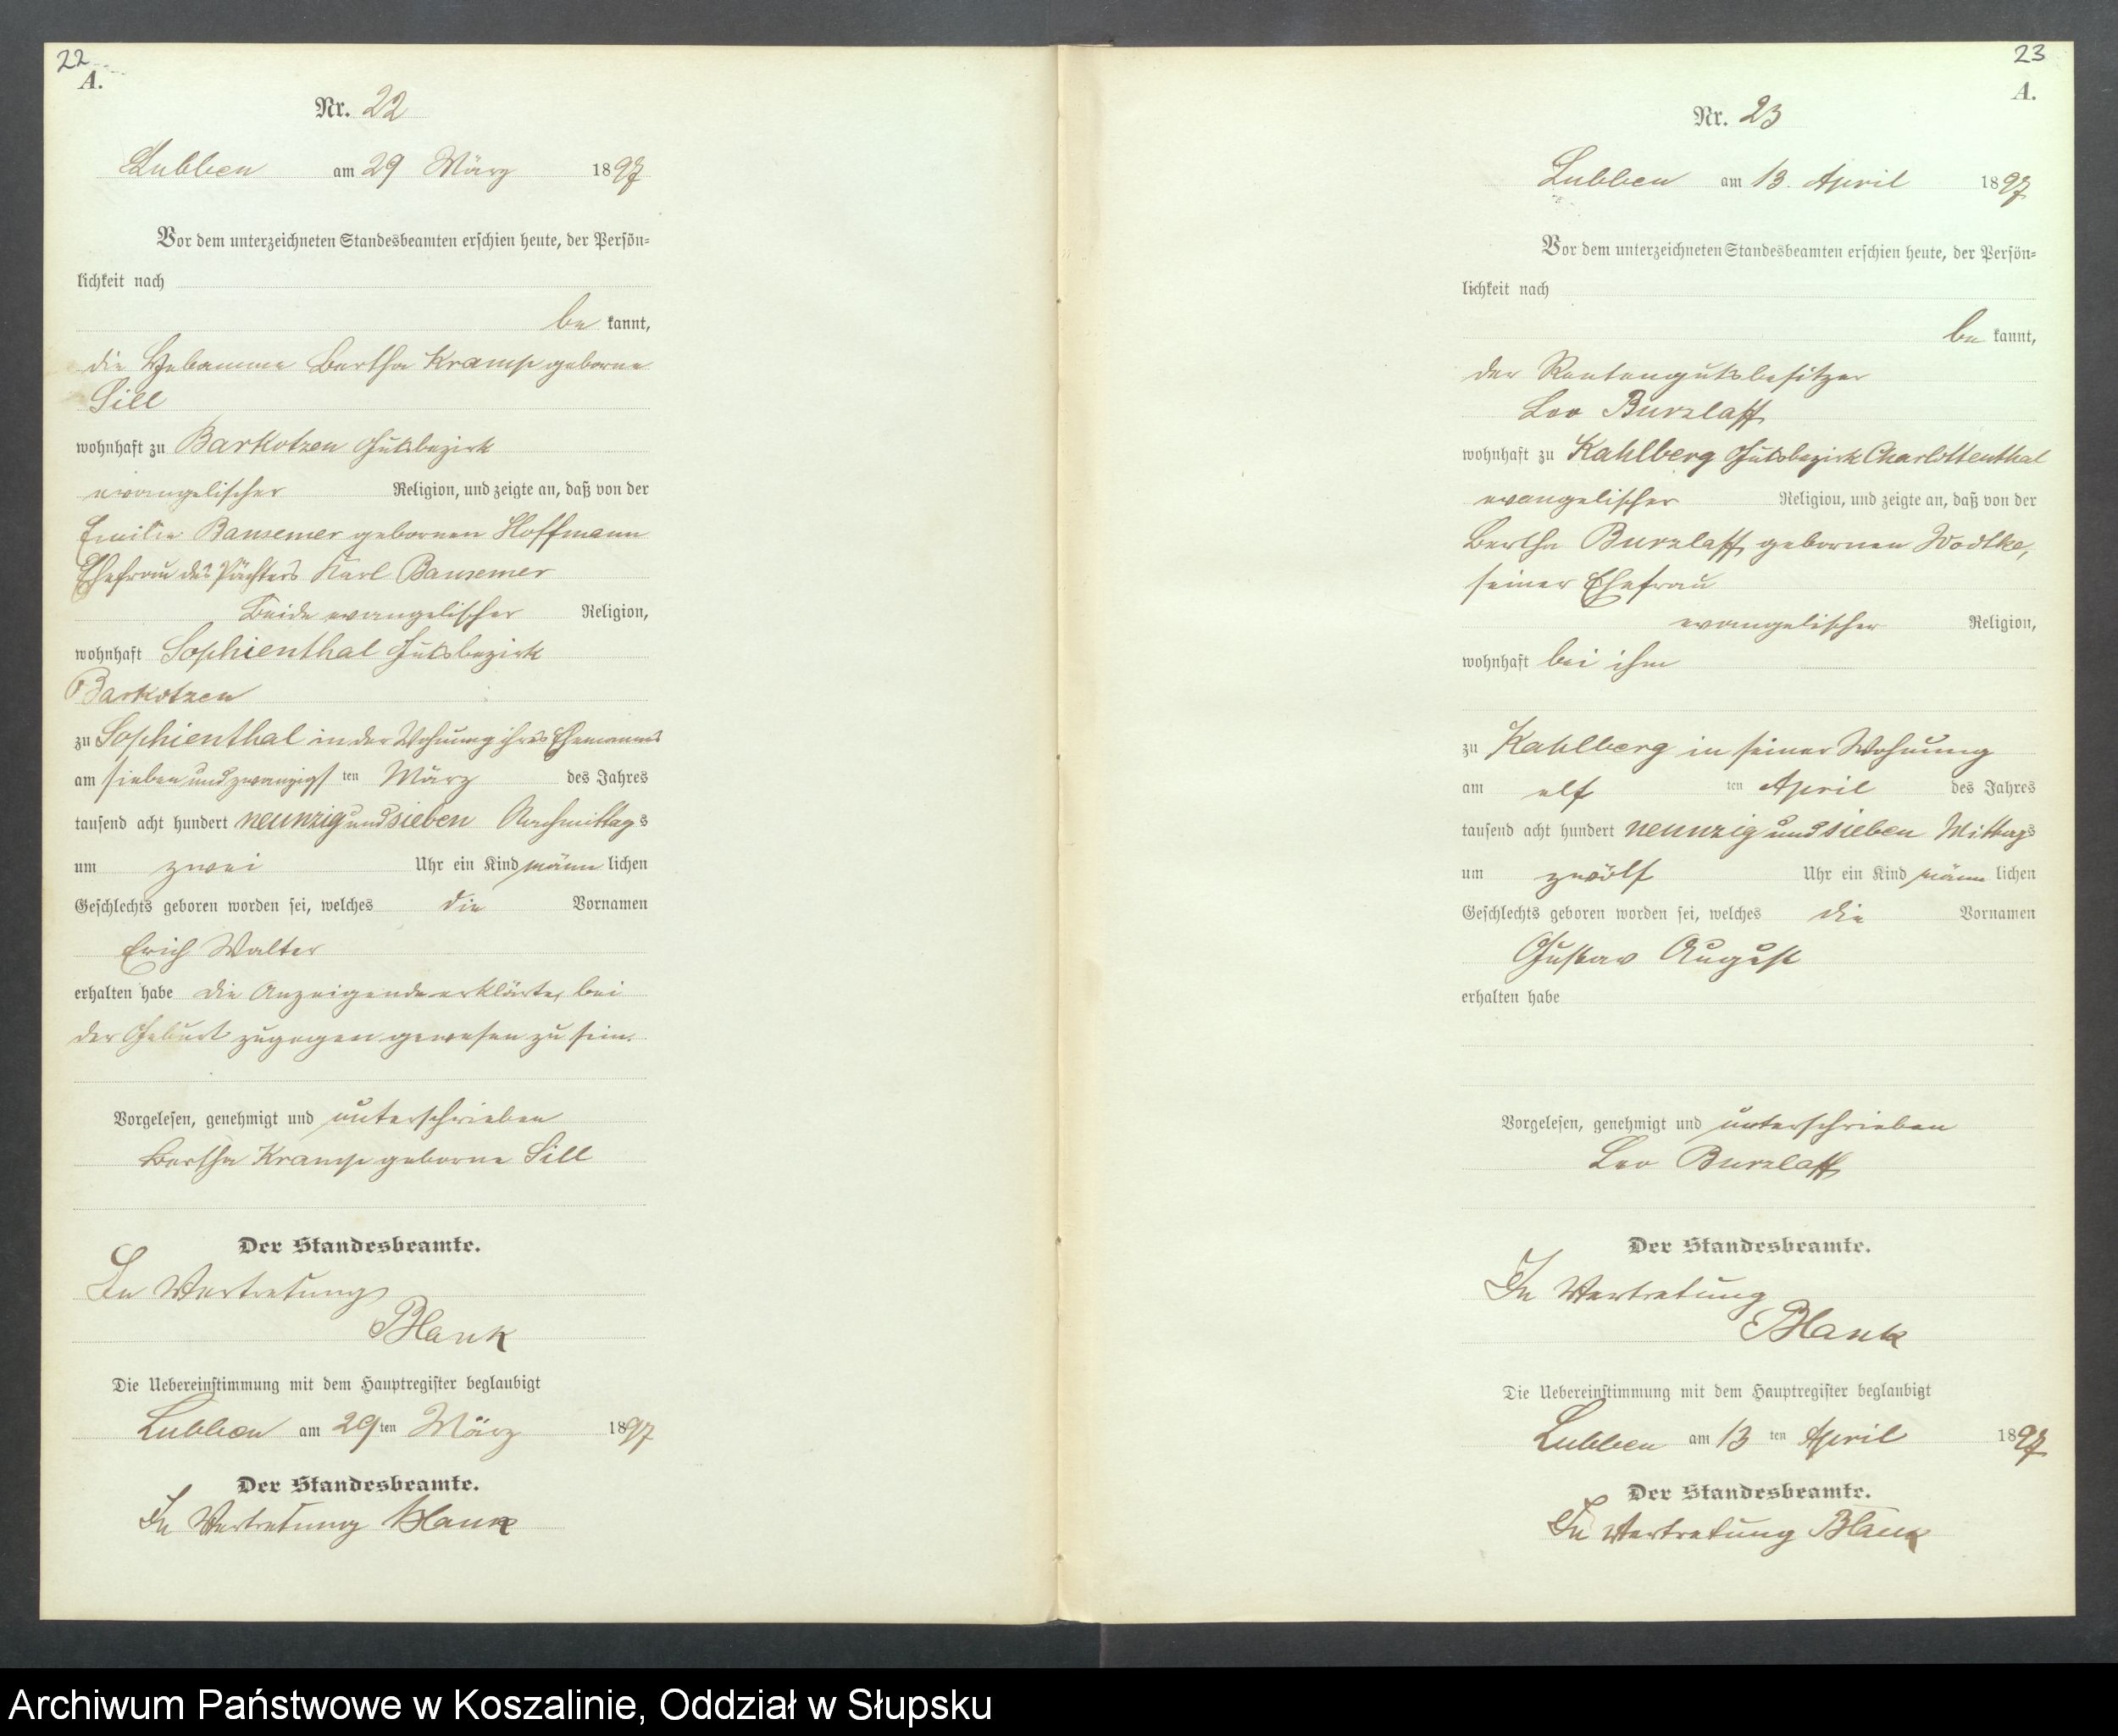 22
A.
Nr. 22
Lubben am 29 März 1897
Vor dem unterzeichneten Standesbeamten erschien heute, der Persön=
lichkeit nach
be kannt,
die Hebamme Bertha Kramp geborne
Sill
wohnhaft zu Barkotzen Gutsbezirk
evangelischer Religion, und zeigte an, daß von der
Emilie Bansemer gebornen Hoffmann
Ehefrau des Pächters Karl Bansemer
Beide evangelischer Religion,
wohnhaft Sophienthal Gutsbezirk
Barkotzen
zu Sophienthal in der Wohnung ihres Ehemannes
am siebenundzwanzigs ten März des Jahres
tausend acht hundert neunzig und sieben Nachmittags
um zwei Uhr ein Kind männ lichen
Geschlechts geboren worden sei, welches die Vornamen
Erich Walter
erhalten habe die Anzeigende erklärte, bei
der Geburt zugegen gewesen zu sein.
Vorgelesen, genehmigt und unterschrieben
Bertha Kramp geborne Sill
Der Standesbeamte.
In Vertretung
Blank
Die Uebereinstimmung mit dem Hauptregister beglaubigt
Lubben am 29ten März 1897
Der Standesbeamte.
In Vertretung Blank
23
A.
Nr. 23
Lubben am 13. April 1897
Vor dem unterzeichneten Standesbeamten erschien heute, der Persön=
lichkeit nach
be kannt,
der Rentengutsbesitzer
Leo Burzlaff
wohnhaft zu Kahlberg Gutsbezirk Charlottenthal
evangelischer Religion, und zeigte an, daß von der
Bertha Burzlaff gebornen Wodtke,
seiner Ehefrau
evangelischer Religion,
wohnhaft bei ihm
zu Kahlberg in seiner Wohnung
am elf ten April des Jahres
tausend acht hundert neunzig und sieben Mittags
um zwölf Uhr ein Kind männ lichen
Geschlechts geboren worden sei, welches die Vornamen
Gustav August
erhalten habe
Vorgelesen, genehmigt und unterschrieben
Leo Burzlaff
Der Standesbeamte.
In Vertretung
Blank
Die Uebereinstimmung mit dem Hauptregister beglaubigt
Lubben am 13 ten April 1897
Der Standesbeamte.
In Vertretung Blank
Archiwum Państwowe w Koszalinie, Oddział w Słupsku